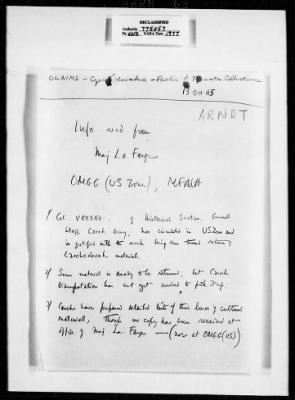 DECLASSIFIED
Authority 775057
By NARA Date 1999
CLAIMS - Czechoslovakia - Public & Private Collections
13 Oct 45
ARNDT
Info rec'd from
Maj La Farge
OMGG (US Zone), MFA&A
1/ Col VESSKO. of Historical Section, General
Staff, Czech Army, has circulated in US Zone and
is satisfied with the work being done toward returning
Czechoslovak material.
2/ Some material is ready to be returned, but Czech
transportation has not yet arrived to pick it up.
3/ Czechs have prepared detailed lists of their losses of cultural
material, though no copy has been received at
office of Maj La Farge — (now at OMGG (US))